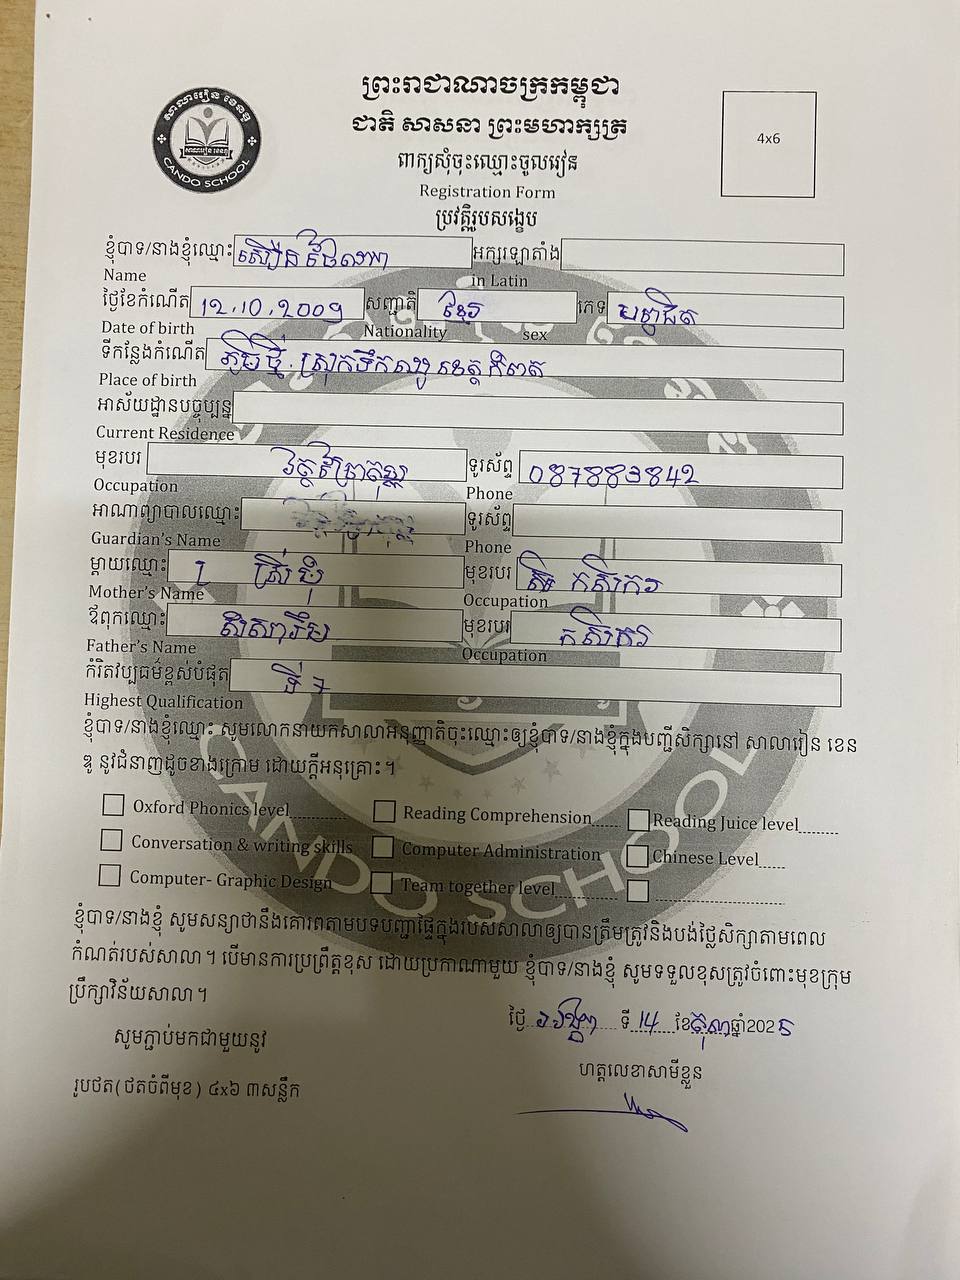 ព្រះរាជាណាចក្រកម្ពុជា
ជាតិ សាសនា ព្រះមហាក្សត្រ
ពាក្យសុំចុះឈ្មោះចូលរៀន
Registration Form
ប្រវត្តិរូបសង្ខេប
សាលារៀន ខេនឌូ
CANDO SCHOOL
4x6
ខ្ញុំបាទ/នាងខ្ញុំឈ្មោះ អក្សរឡាតាំង
Name in Latin
ថ្ងៃខែកំណើត 12.10.2009 សញ្ជាតិ ខ្មែរ ភេទ
Date of birth Nationality sex
ទីកន្លែងកំណើត ភូមិថ្មី. ស្រុកទឹកឈូ ខេត្តកំពត
Place of birth
អាស័យដ្ឋានបច្ចុប្បន្ន
Current Residence
មុខរបរ ទូរស័ព្ទ 087883842
Occupation Phone
អាណាព្យាបាលឈ្មោះ ទូរស័ព្ទ
Guardian's Name Phone
ម្តាយឈ្មោះ មុខរបរ កសិករ
Mother's Name Occupation
ឪពុកឈ្មោះ មុខរបរ កសិករ
Father's Name Occupation
កំរិតវប្បធម៌ខ្ពស់បំផុត ទី 7
Highest Qualification
ខ្ញុំបាទ/នាងខ្ញុំឈ្មោះ សូមលោកនាយកសាលាអនុញ្ញាតិចុះឈ្មោះឲ្យខ្ញុំបាទ/នាងខ្ញុំក្នុងបញ្ជីសិក្សានៅ សាលារៀន ខេន
ឌូ នូវជំនាញដូចខាងក្រោម ដោយក្តីអនុគ្រោះ។
Oxford Phonics level Reading Comprehension Reading Juice level
Conversation & writing skills Computer Administration Chinese Level
Computer- Graphic Design Team together level
CANDO SCHOOL
ខ្ញុំបាទ/នាងខ្ញុំ សូមសន្យាថានឹងគោរពតាមបទបញ្ជាផ្ទៃក្នុងរបស់សាលាឲ្យបានត្រឹមត្រូវនិងបង់ថ្លៃសិក្សាតាមពេល
កំណត់របស់សាលា។ បើមានការប្រព្រឹត្តខុស ដោយប្រកាណាមួយ ខ្ញុំបាទ/នាងខ្ញុំ សូមទទួលខុសត្រូវចំពោះមុខក្រុម
ប្រឹក្សាវិន័យសាលា។
ថ្ងៃ អង្គារ ទី 14 ខែ តុលា ឆ្នាំ2025
សូមភ្ជាប់មកជាមួយនូវ
ហត្ថលេខាសាមីខ្លួន
រូបថត(ថតចំពីមុខ) ៤x៦ ៣សន្លឹក